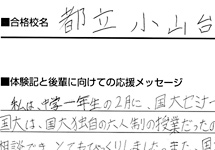 ■合格校名 都立 小山台
■体験記と後輩に向けての応援メッセージ
私は、中学一年生の2月に、国大セミナ
国大は、国大独自の大人制の授業だったの
相談でき、とてもびっくりしました。また、国